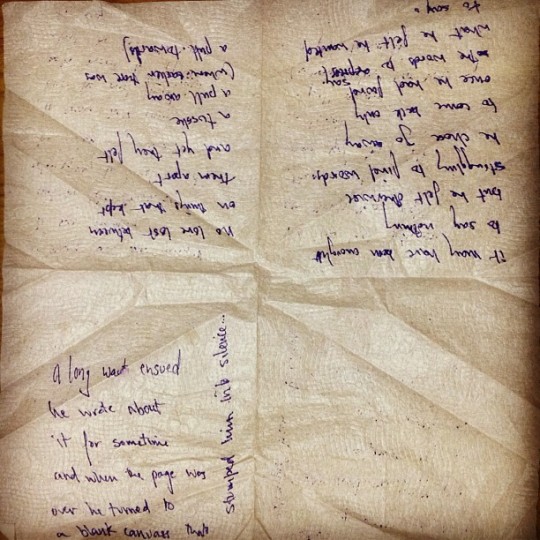 it may have been enough
to say nothing
but he felt
struggling to find words.
he chose go away
to come back only
once he had found
the words to express/say
what he felt he wanted
to say.
no love lost between
on things that kept
them apart
and yet they felt
a tussle
a pull away
(when earlier there was
a pull towards)
a long wait ensued
he wrote about
it for sometime
and when the page was
over he turned to
a blank canvass that
stumped him into silence...